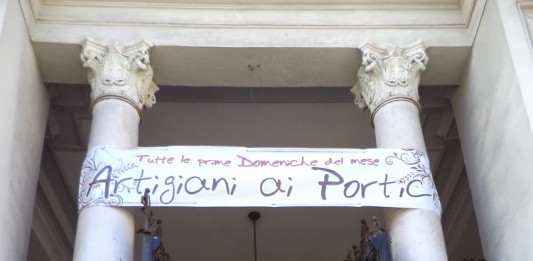 Tutte le prime Domeniche del mese
Artigiani ai Portici